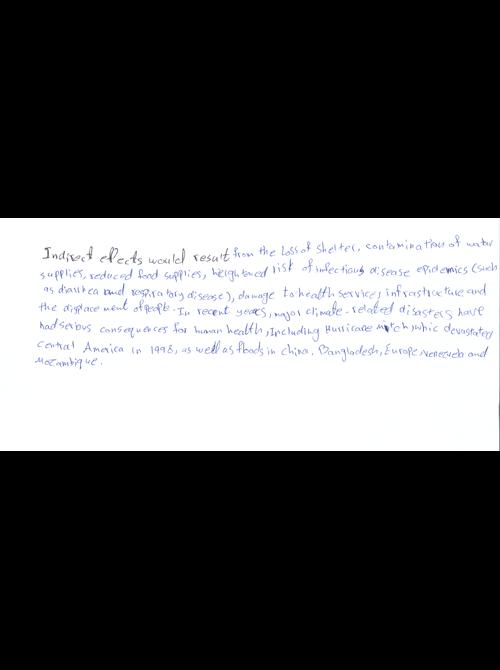 Indirect effects would result from the Loss of shelter, contamination of water
supplies, reduced food supplies, heightened risk of infectious disease epidemics (such
as diarrhea and respiratory disease), damage to health services infrastructure and
the displacement of people. In recent years, major climate-related disasters have
had serious consequences for human health, Including Hurricane mitch whic devastated
central America in 1998, as well as floods in china, Bangladesh, Europe, Venezuela and
Mozambique.